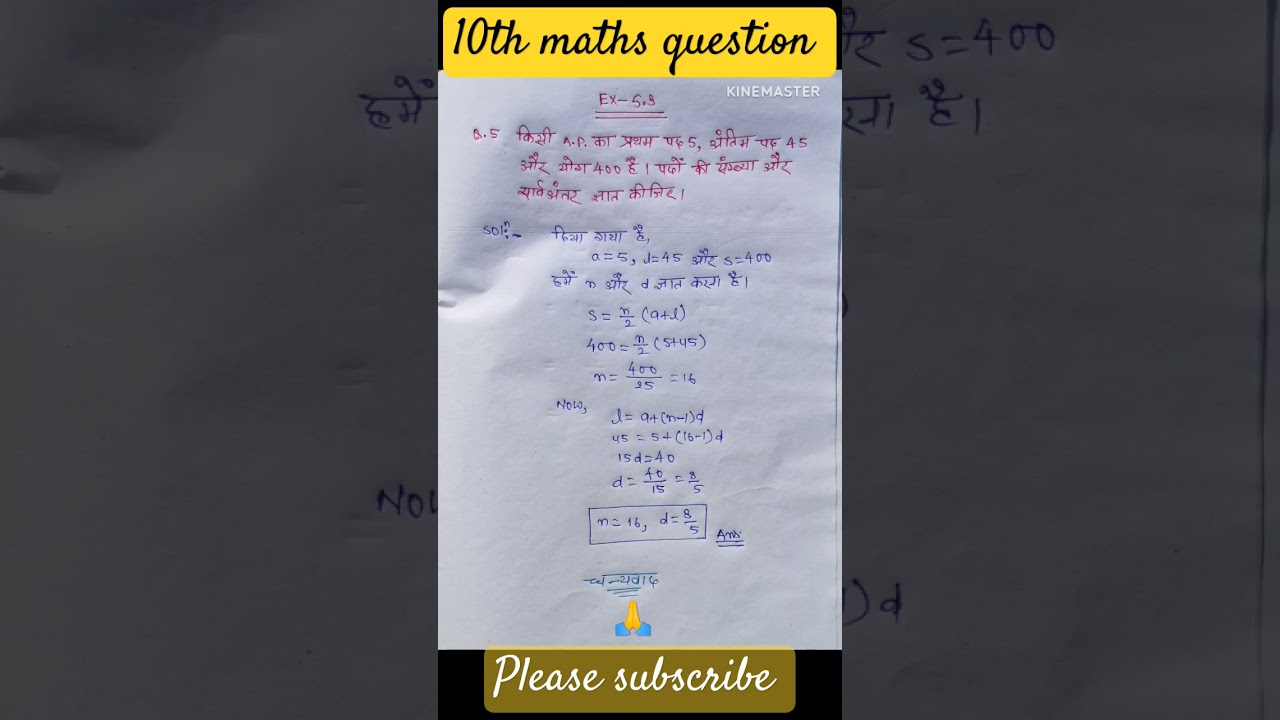 10th maths question
KINEMASTER
EX-5.3
Q.5 किसी A.P. का प्रथम पद 5, अंतिम पद 45
और योग 400 है। पदों की संख्या और
सार्वअंतर ज्ञात कीजिए।
Solⁿ:- दिया गया है,
a=5, l=45 और s=400
हमें n और d ज्ञात करना है।
S = n/2 (a+l)
400 = n/2 (5+45)
n = 400/25 = 16
Now,
l = a+(n-1)d
45 = 5+(16-1)d
15d=40
d = 40/15 = 8/5
n=16, d=8/5
Ans:
धन्यवाद
Please subscribe
और s=400
हमें
रना है।
Now
)d